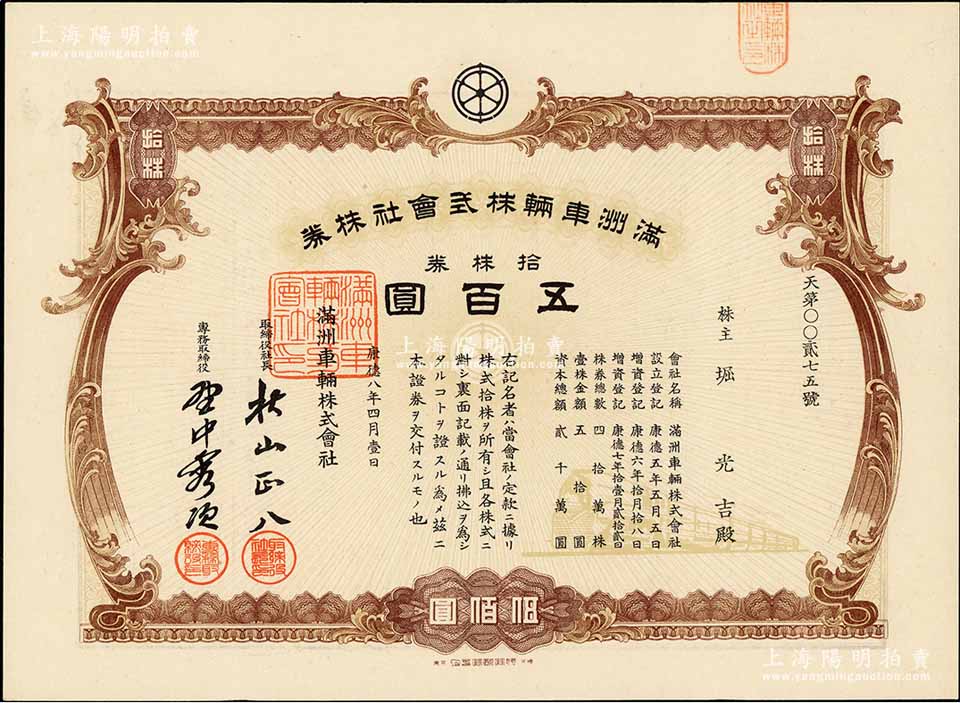 上海陽明拍賣
www.yangmingauction.com
拾株
拾株
滿洲車輛株式會社株券
拾株券
五百圓
天第〇〇貳七五號
株主 堀 光吉殿
會社名稱 滿洲車輛株式會社
設立登記 康德五年五月五日
增資登記 康德六年拾月拾八日
增資登記 康德七年拾壹月貳拾貳日
株券總數 四拾萬株
壹株金額 五拾圓
資本總額 貳千萬圓
右記名者ハ當會社ノ定款ニ據リ
株式拾株ヲ所有シ且各株式ニ
對シ裏面記載ノ通リ拂込ヲ爲シ
タルコトヲ證スル爲メ茲ニ
本證券ヲ交付スルモノ也
康德八年四月壹日
滿洲車輛株式會社
滿洲車輛株式會社印
取締役社長
山正八
專務取締役
中秀
上海陽明拍賣
www.yangmingauction.com
伍佰圓
上海陽明拍賣
www.yangmingauction.com